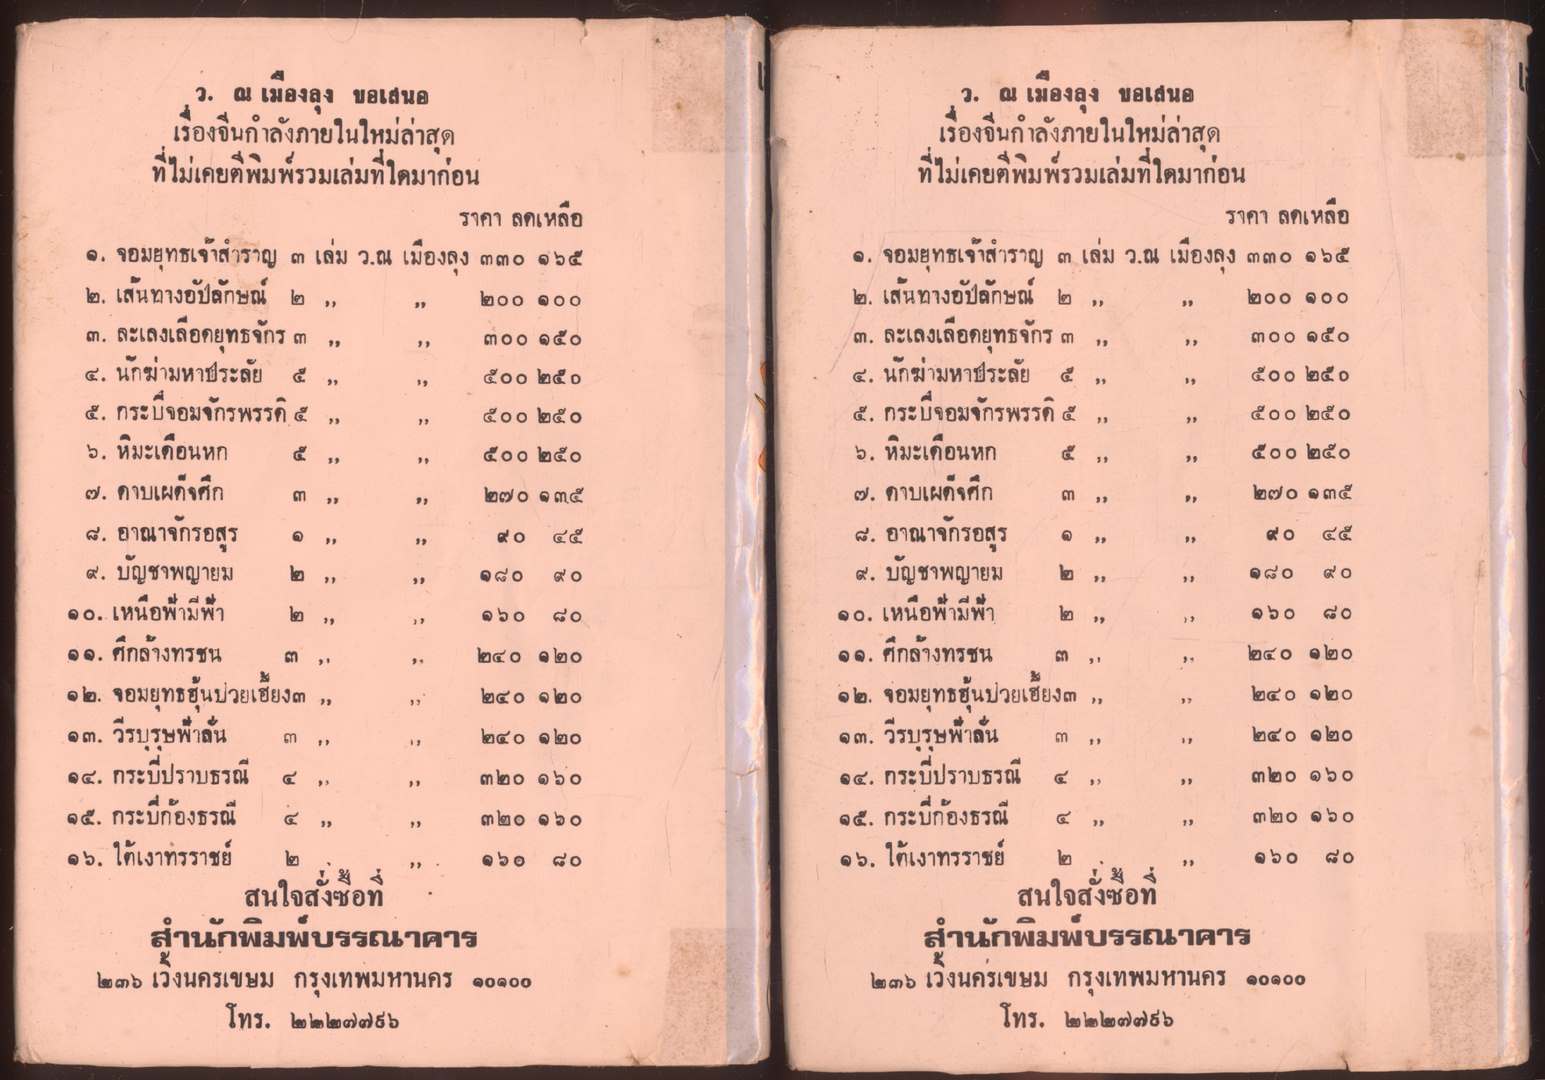 ว. ณ เมืองลุง ขอเสนอ
เรื่องจีนกำลังภายในใหม่ล่าสุด
ที่ไม่เคยตีพิมพ์รวมเล่มที่ใดมาก่อน
ราคา ลดเหลือ
๑. จอมยุทธเจ้าสำราญ ๓ เล่ม ว.ณ เมืองลุง ๓๓๐ ๑๖๕
๒. เส้นทางอัปลักษณ์ ๒ ,, ,, ๒๐๐ ๑๐๐
๓. ละเลงเลือดยุทธจักร ๓ ,, ,, ๓๐๐ ๑๕๐
๔. นักฆ่ามหาประลัย ๕ ,, ,, ๕๐๐ ๒๕๐
๕. กระบี่จอมจักรพรรดิ ๕ ,, ,, ๕๐๐ ๒๕๐
๖. หิมะเดือนหก ๕ ,, ,, ๕๐๐ ๒๕๐
๗. ดาบเผด็จศึก ๓ ,, ,, ๒๗๐ ๑๓๕
๘. อาณาจักรอสูร ๑ ,, ,, ๙๐ ๔๕
๙. บัญชาพญายม ๒ ,, ,, ๑๘๐ ๙๐
๑๐. เหนือฟ้ามีฟ้า ๒ ,, ,, ๑๖๐ ๘๐
๑๑. ศึกล้างทรชน ๓ ,, ,, ๒๔๐ ๑๒๐
๑๒. จอมยุทธฮุ้นป่วยเอี้ยง ๓ ,, ,, ๒๔๐ ๑๒๐
๑๓. วีรบุรุษฟ้าลั่น ๓ ,, ,, ๒๔๐ ๑๒๐
๑๔. กระบี่ปราบธรณี ๔ ,, ,, ๓๒๐ ๑๖๐
๑๕. กระบี่ก้องธรณี ๔ ,, ,, ๓๒๐ ๑๖๐
๑๖. ใต้เงาทรราชย์ ๒ ,, ,, ๑๖๐ ๘๐
สนใจสั่งซื้อที่
สำนักพิมพ์บรรณาคาร
๒๓๖ เวิ้งนครเขษม กรุงเทพมหานคร ๑๐๑๐๐
โทร. ๒๒๒๗๗๙๖
ว. ณ เมืองลุง ขอเสนอ
เรื่องจีนกำลังภายในใหม่ล่าสุด
ที่ไม่เคยตีพิมพ์รวมเล่มที่ใดมาก่อน
ราคา ลดเหลือ
๑. จอมยุทธเจ้าสำราญ ๓ เล่ม ว.ณ เมืองลุง ๓๓๐ ๑๖๕
๒. เส้นทางอัปลักษณ์ ๒ ,, ,, ๒๐๐ ๑๐๐
๓. ละเลงเลือดยุทธจักร ๓ ,, ,, ๓๐๐ ๑๕๐
๔. นักฆ่ามหาประลัย ๕ ,, ,, ๕๐๐ ๒๕๐
๕. กระบี่จอมจักรพรรดิ ๕ ,, ,, ๕๐๐ ๒๕๐
๖. หิมะเดือนหก ๕ ,, ,, ๕๐๐ ๒๕๐
๗. ดาบเผด็จศึก ๓ ,, ,, ๒๗๐ ๑๓๕
๘. อาณาจักรอสูร ๑ ,, ,, ๙๐ ๔๕
๙. บัญชาพญายม ๒ ,, ,, ๑๘๐ ๙๐
๑๐. เหนือฟ้ามีฟ้า ๒ ,, ,, ๑๖๐ ๘๐
๑๑. ศึกล้างทรชน ๓ ,, ,, ๒๔๐ ๑๒๐
๑๒. จอมยุทธฮุ้นป่วยเอี้ยง ๓ ,, ,, ๒๔๐ ๑๒๐
๑๓. วีรบุรุษฟ้าลั่น ๓ ,, ,, ๒๔๐ ๑๒๐
๑๔. กระบี่ปราบธรณี ๔ ,, ,, ๓๒๐ ๑๖๐
๑๕. กระบี่ก้องธรณี ๔ ,, ,, ๓๒๐ ๑๖๐
๑๖. ใต้เงาทรราชย์ ๒ ,, ,, ๑๖๐ ๘๐
สนใจสั่งซื้อที่
สำนักพิมพ์บรรณาคาร
๒๓๖ เวิ้งนครเขษม กรุงเทพมหานคร ๑๐๑๐๐
โทร. ๒๒๒๗๗๙๖